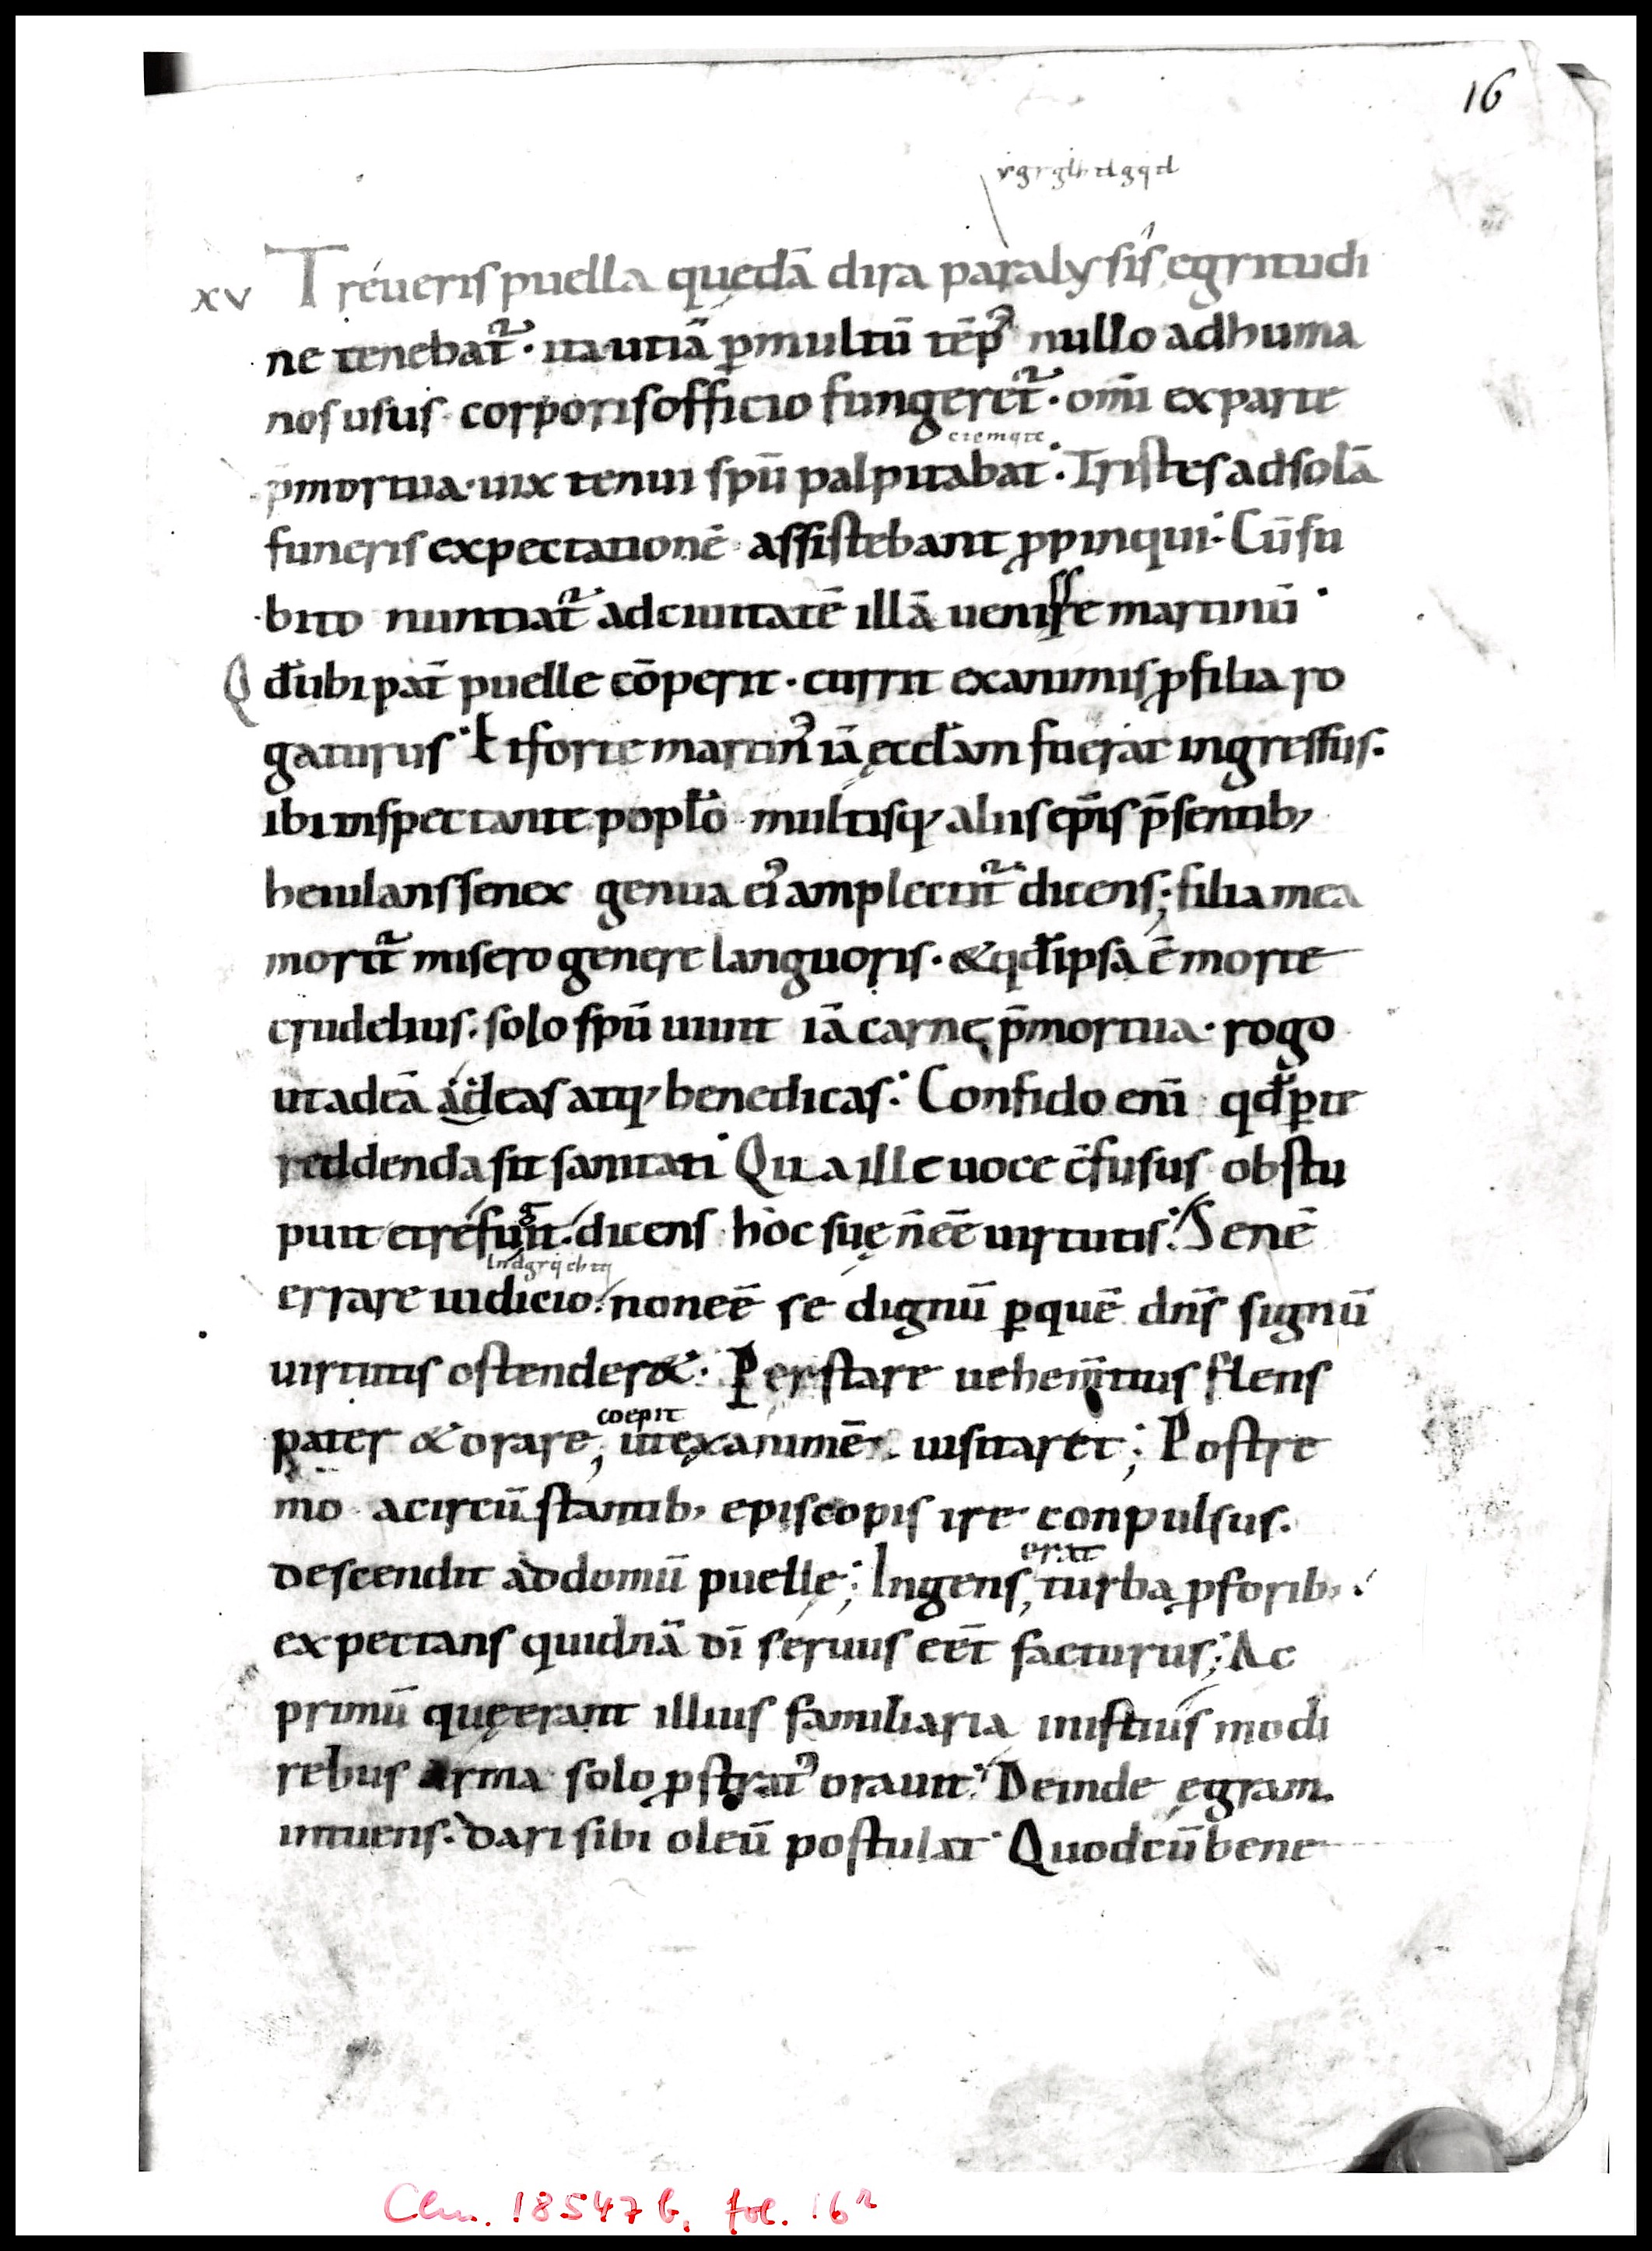 16
xv Treueris puella quędā dira paralysis egritudi
ne tenebat᷑· ita utiā ꝑmultū tēp᾿ nullo ad huma
nos usus corporis officio fungeret᷑· om̄i ex parte
p̄mortua· uix tenui sp̄u palpitabat· Tristes ad solā
funeris expectationē assistebant ꝓpinqui· Cū su
bito nuntiat᷑ ad ciuitatē illā uenisse martinū·
Qd̄ ubi pat̄ puelle cōperit· currit exanimis ꝓ filia ro
gaturus· Et forte martin᾿ iā ęccl̄am fuerat ingressus·
ibi inspectante popl̄o multisq; aliis ep̄is p̄sentib;
heiulans senex genua ei᾿ amplectit᷑ dicens; filia mea
morit᷑ misero genere languoris· & qd̄ ipsa ē morte
crudelius· solo sp̄u uiuit iā carne p̄mortua· rogo
ut ad eā adeas atq; benedicas· Confido eni̅ qd̄ ꝑ te
reddenda sit sanitati· Qua ille uoce c̄fusus obstu
puit et refugit· dicens hoc suę n̄ eē uirtutis· Senē
errare iudicio· non eē se dignū ꝑ quē dn̄s signū
uirtutis ostender&· Perstare uehem̄tius flens
coepit
pater & orare, ut exanimē uisitaret; Postre
mo a circū stantib; episcopis ire conpulsus·
erat
descendit ad domū puellę; Ingens, turba ꝓ forib;
expectans quidnā dī seruus eēt facturus; Ac
primū quę erant illius familiaria in istius modi
rebus arma solo ꝓstrat᾿ orauit· Deinde ęgram
intuens· dari sibi oleū postulat· Quod cū bene
Clm. 18547 b, fol. 16r